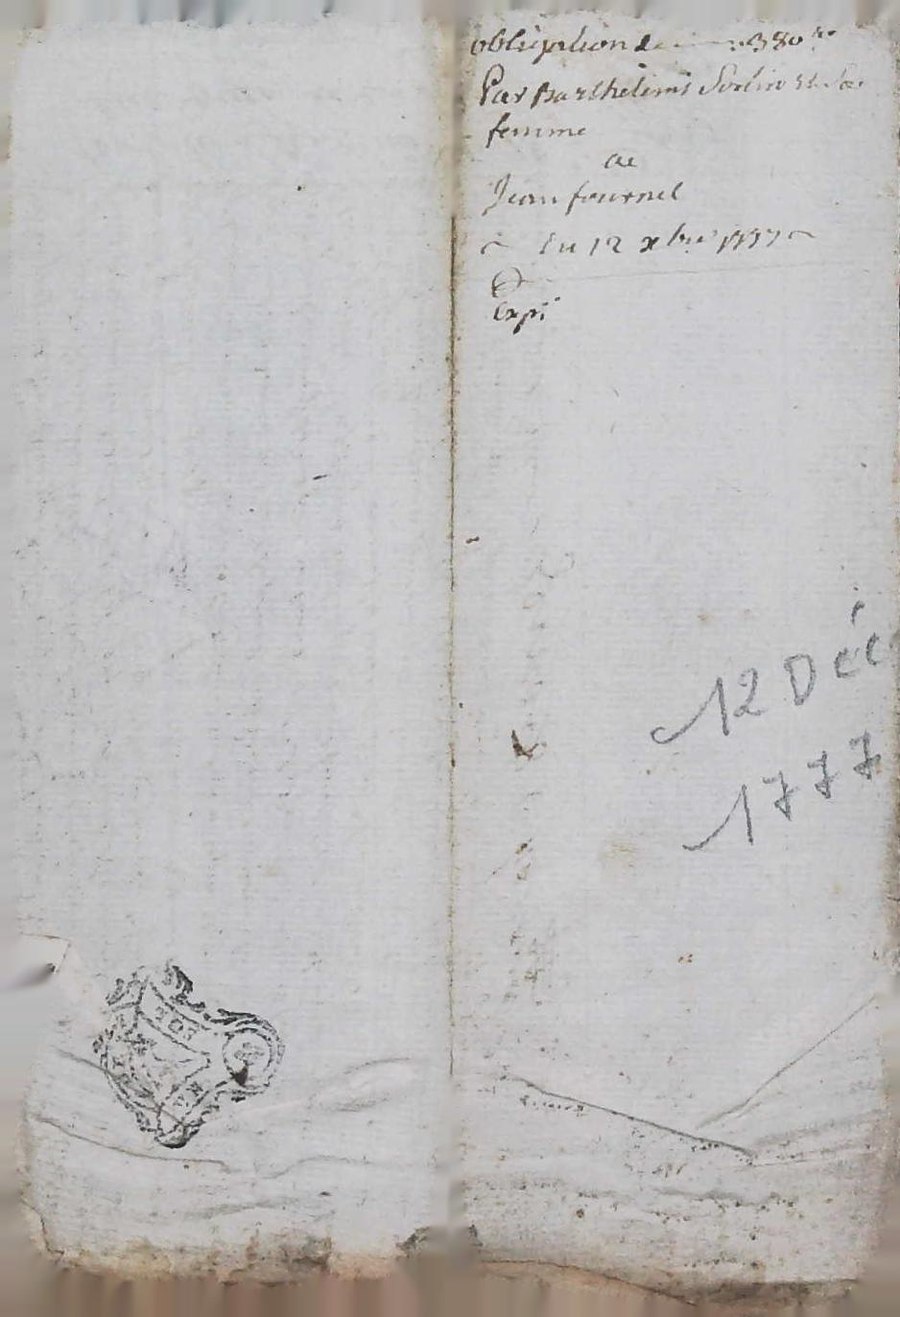 obligation de 380 ₶
Par Barthelemi Sorlin et Sa
femme
a
Jean fournel
Du 12 xbre 1777
Expé
12 Déc
1777